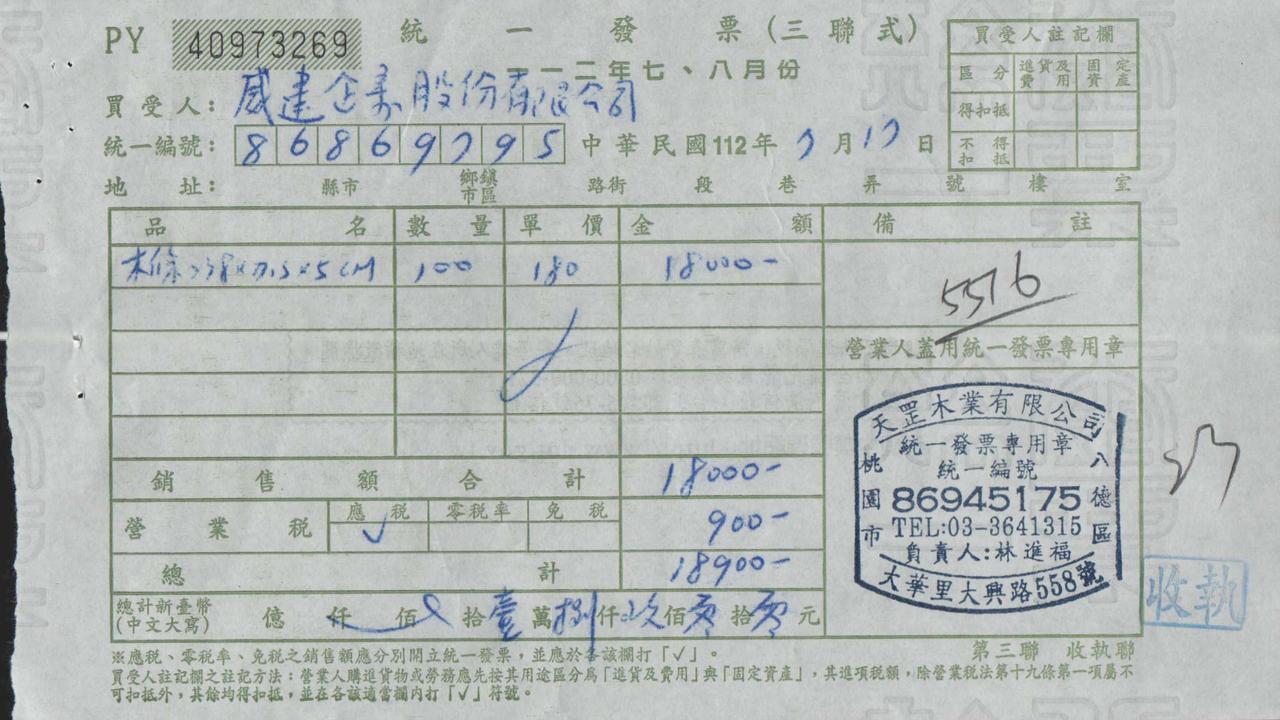 PY 40973269 統一發票(三聯式)
一一二年七、八月份
買受人註記欄
區分 進貨及費用 固定資產
得扣抵
不得扣抵
買受人: 威建企業股份有限公司
統一編號: 86869795 中華民國112年7月17日
地址: 縣市 鄉鎮市區 路街 段 巷 弄 號 樓 室
品名 數量 單價 金額 備註
木條 5CM 100 180 18000-
5516
營業人蓋用統一發票專用章
銷售額合計 18000-
營業稅 應稅 零稅率 免稅 900-
✓
總計 18900-
總計新臺幣(中文大寫) 億 仟 佰 拾壹萬捌仟玖佰零拾零元
天罡木業有限公司
統一發票專用章
統一編號
86945175
TEL:03-3641315
負責人:林進福
桃園市
八德區
大華里大興路558號
收執
第三聯 收執聯
※應稅、零稅率、免稅之銷售額應分別開立統一發票,並應於各該欄打「✓」。
買受人註記欄之註記方法:營業人購進貨物或勞務應先按其用途區分為「進貨及費用」與「固定資產」,其進項稅額,除營業稅法第十九條第一項屬不
可扣抵外,其餘均得扣抵,並在各該適當欄內打「✓」符號。